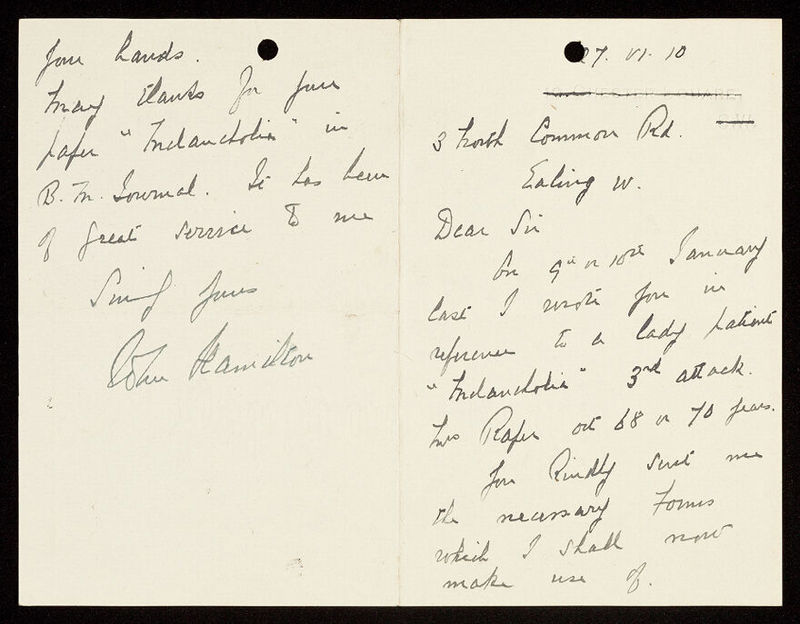 27. VI. 10
3 North Common Rd.
Ealing W.
Dear Sir
On 9th or 10th January
last I wrote you in
reference to a lady patient
"Melancholia" 3rd attack.
Mrs Roper aet 68 or 70 years.
You kindly sent me
the necessary Forms
which I shall now
make use of.
your hands.
Many thanks for your
paper "Melancholia" in
B. M. Journal. It has been
of great service to me
yours
John Hamilton